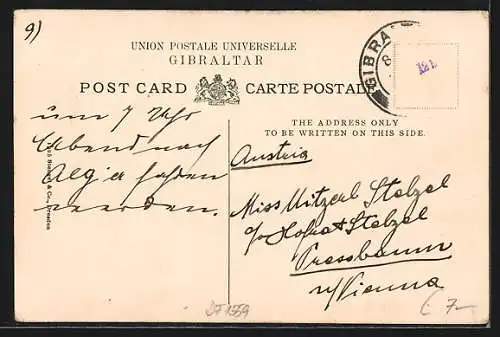 9)
UNION POSTALE UNIVERSELLE
GIBRALTAR
POST CARD CARTE POSTALE
GIBRA
8
121.
THE ADDRESS ONLY
TO BE WRITTEN ON THIS SIDE.
um 7 Uhr
Abend nach
Algier fahren
werden.
& Co., Dresden
Austria
Miss Mitzerl Stelzel
c/o Hofrat Stelzel
Pressbaum
n/Vienna
7-